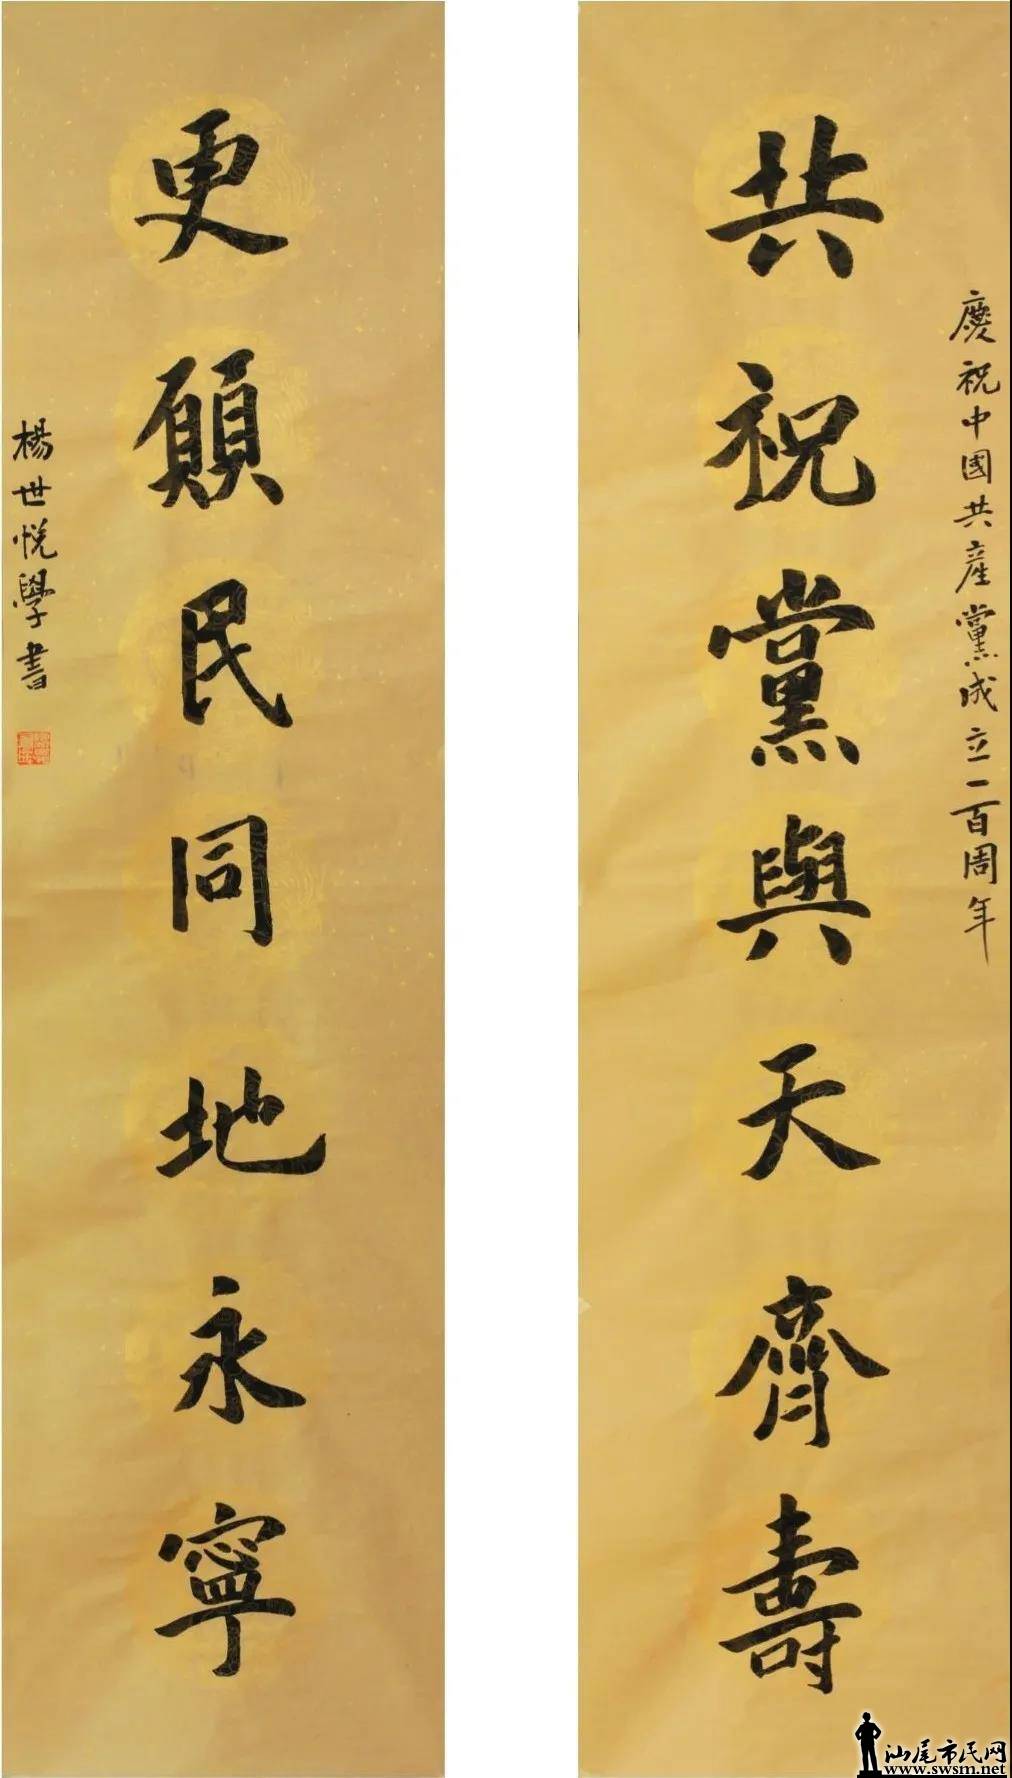 慶祝中國共產黨成立一百周年
共祝黨與天齊壽
更願民同地永寧
楊世悅學書
汕尾市民网
www.swsm.net